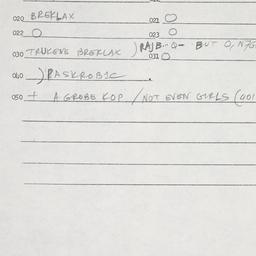 020 BREKLAX 021 O
022 O 023 O
030 TRUKENE BREKLAX ) RAJB..Q- BUT O,
031 O
040 ) PASKROBIC .
050 + A GROBE KOP / NOT EVEN GIRLS (